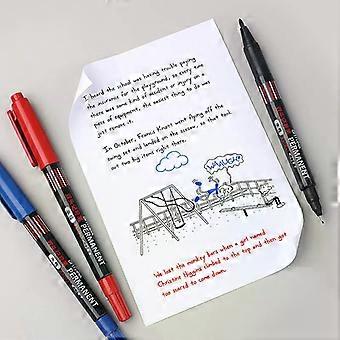 I heard the school was having trouble paying
the insurance for the playground, so every time
there was some kind of accident or injury on a
piece of equipment, the easiest thing to do was
just remove it.
In October, Francis Knott went flying off the
swing set and landed on the seesaw, so that took
out two big items right there.
WAUGH!
We lost the monkey bars when a girl named
Christine Higgins climbed to the top and then got
too scared to come down.
PERMANENT
PERMANENT
PERMANENT